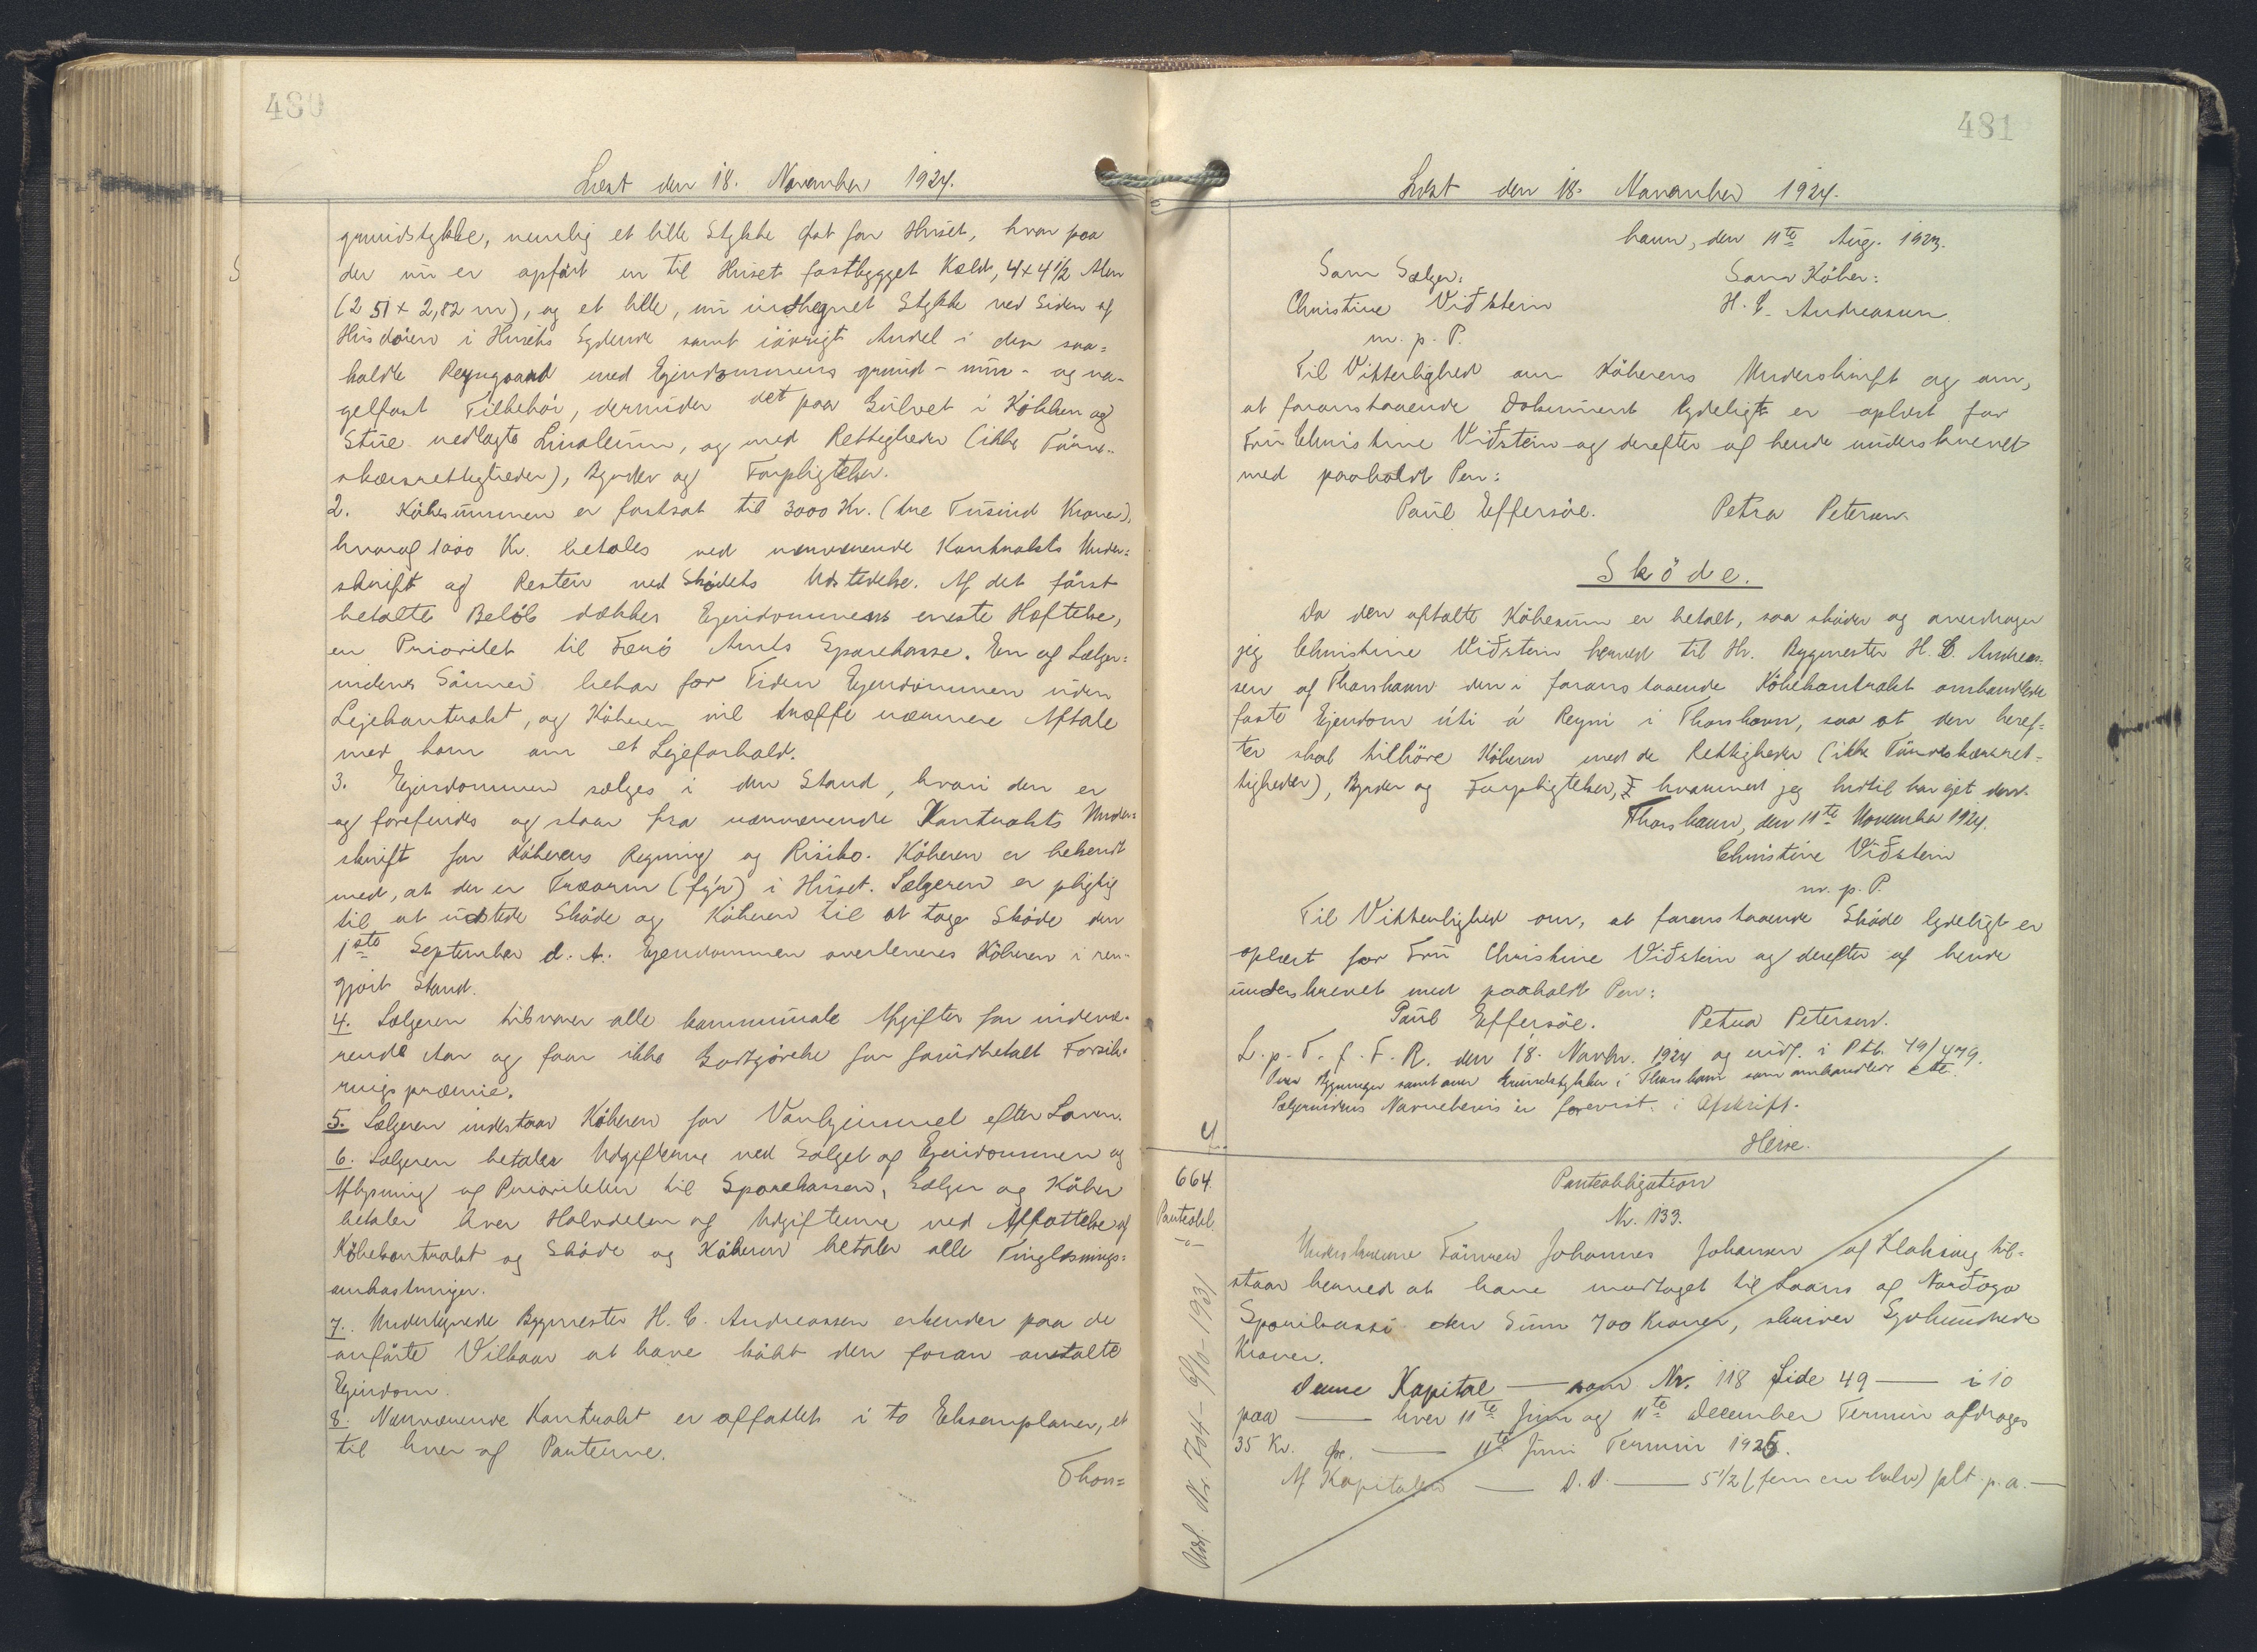 480
Læst den 18. November 1924.
grundstykke, nemlig et lille Stykke øst for Huset, hvor paa
der nu er opført en til Huset fastbygget Kæld, 4 x 4 1/2 Alen
(2 51 x 2,82 m), og et lille, nu indhegnet Stykke ved Siden af
Husdøren i Husets Sydende samt iøvrigt Andel i den saa=
kaldte Reyngaard med Ejendommens grund- mur- og na-
gelfast Tilbehør, derunder det paa Gulvet i Køkken og
Stue nedlagte Linoleum, og med Rettigheder (ikke Tørve-
skærsrettigheder), Byrder og Forpligtelser.
2. Købesummen er fastsat til 3000 Kr. (tre Tusind Kroner),
hvoraf 1000 Kr. betales ved nærværende Kontrakts Under=
skrift og Resten ved Skødets Udstedelse. Af det først
betalte Beløb dækkes Ejendommens eneste Hæftelse,
en Prioritet til Færø Amts Sparekasse. En af Sælger=
indens Sønner bebor for Tiden Ejendommen uden
Lejekontrakt, og Køberen vil træffe nærmere Aftale
med ham om et Lejeforhold.
3. Ejendommen sælges i den Stand, hvori den er
og forefindes og staar fra nærværende Kontrakts Under=
skrift for Køberens Regning og Risiko. Køberen er bekendt
med, at der er Træorm (fýr) i Huset. Sælgeren er pligtig
til at udstede Skøde og Køberen til at tage Skøde den
1ste September d. A. Ejendommen overleveres Køberen i ren-
gjort Stand.
4. Sælgeren tilsvarer alle kommunale Afgifter for indevæ-
rende Aar og faar ikke Godtgørelse for forudbetalt Forsik-
ringspræmie.
5. Sælgeren indestaar Køberen for Vanhjemmel efter Loven.
6. Sælgeren betaler Udgifterne ved Salget af Ejendommen og
Aflysning af Prioriteten til Sparekassen, Sælger og Køber
betaler hver Halvdelen af Udgifterne ved Affattelse af
Købekontrakt og Skøde og Køberen betaler alle Tinglæsnings=
omkostninger.
7. Undertegnede Bygmester H. C. Andreassen erkender paa de
anførte Vilkaar at have købt den foran omtalte
Ejendom.
8. Nærværende Kontrakt er affattet i to Eksemplarer, et
til hver af Parterne.
Thors=
481
Læst den 18. November 1924.
havn, den 11te Aug. 1923.
Som Sælger: Som Køber:
Christine Viðstein H. C. Andreasen
m. p. P.
Til Vitterlighed om Køberens Underskrift og om,
at foranstaaende Dokument lydeligt er oplæst for
Fru Christine Viðstein og derefter af hende underskrevet
med paaholdt Pen:
Paul Effersöe. Petra Petersen
Sköde.
Da den aftalte Købesum er betalt, saa skøder og overdrager
jeg Christine Viðstein herved til Hr. Bygmester H. C. Andreas-
sen af Thorshavn den i foranstaaende Købekontrakt omhandlede
faste Ejendom úti á Reyni i Thorshavn, saa at den heref-
ter skal tilhøre Køberen med de Rettigheder (ikke Tørveskærsret-
tigheder), Byrder og Forpligtelser, hvormed jeg hidtil har ejet den.
Thorshavn, den 11te November 1924.
Christine Viðstein
m. p. P.
Til Vitterlighed om, at foranstaaende Skøde lydeligt er
oplæst for Fru Christine Viðstein og derefter af hende
underskrevet med paaholdt Pen:
Paul Effersöe. Petra Petersen.
L. p. T. f. F. R. den 18. Novbr. 1924 og indf. i Ptb. 49/479.
Over Bygninger samt over Grundstykker i Thorshavn som omhandlede
Sælgerindens Navnebevis er forevist i Afskrift.
Heise.
664.
Panteobl.
Udsl. Nr. 704 - 6/10-1931
Panteobligation
Nr. 133.
Underskrevne Tømrer Johannes Johansen af Klaksvig til-
staar herved at have modtaget til Laans af Norðoya
Sparikassi den Sum 700 Kroner, skriver Syvhundrede
Kroner.
Denne Kapital — som Nr. 118 Side 49 — i 10
paa — hver 11te Juni og 11te December Termin afdrages
35 Kr. — 11te Juni Termin 1925.
Af Kapitalen — D.D. — 5 1/2 (fem en halv) pCt. p. a. —